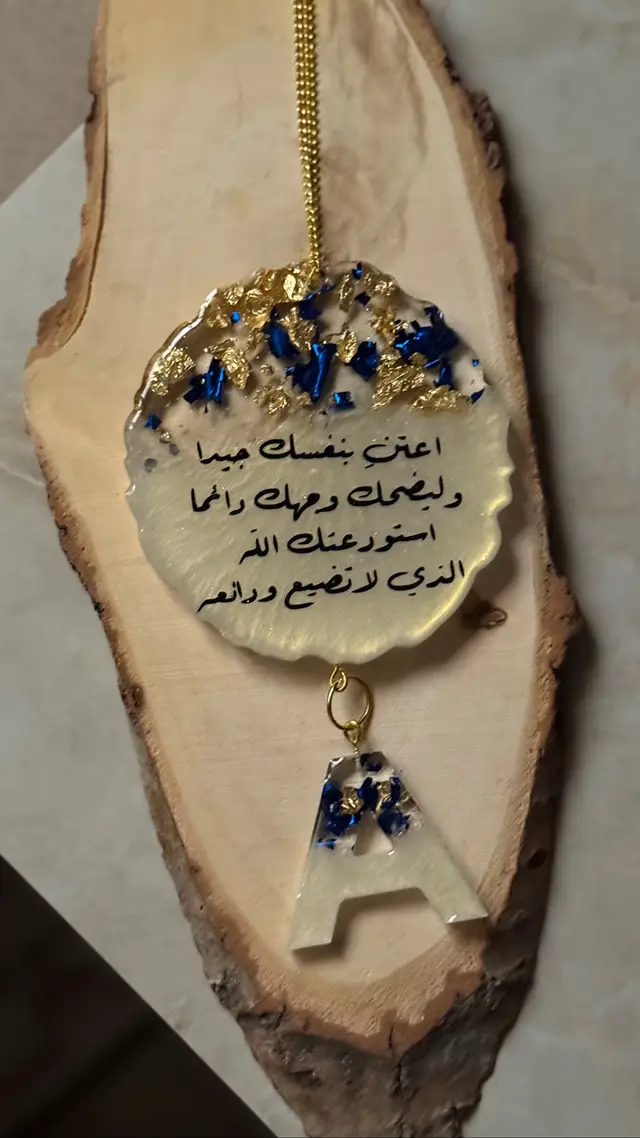 اعتنِ بنفسك جيدا
وليضحك وجهك دائما
استودعتك الله
الذي لا تضيع ودائعه
A